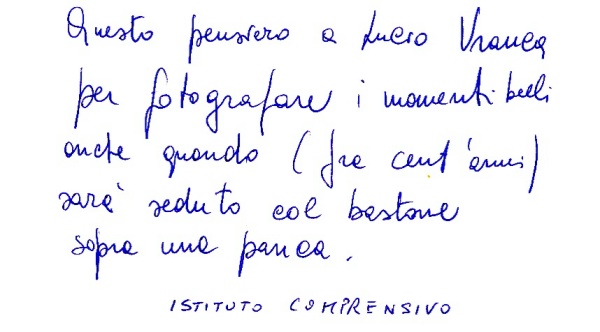 Questo pensiero a Lucio Vranca
per fotografare i momenti belli
anche quando (fra cent'anni)
sarà seduto col bastone
sopra una panca.
ISTITUTO COMPRENSIVO